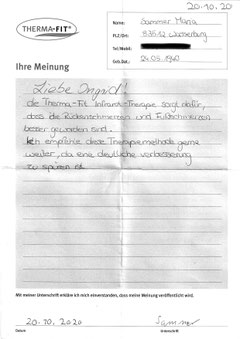 20.10.2020
THERMA-FIT®
Name: Sammer Maria
PLZ/Ort: 83512 Wasserburg
Tel/Mobil:
Geb.Dat.: 24.05.1940
Ihre Meinung
Liebe Ingrid!
die Therma-Fit Infrarot-Therapie sorgt dafür,
dass die Rückenschmerzen und Fußschmerzen
besser geworden sind.
Ich empfehle diese Therapiemethode gerne
weiter, da eine deutliche Verbesserung
zu spüren ist.
Mit meiner Unterschrift erkläre ich mich einverstanden, dass meine Meinung veröffentlicht wird.
20.10.2020 Sammer
Datum Unterschrift